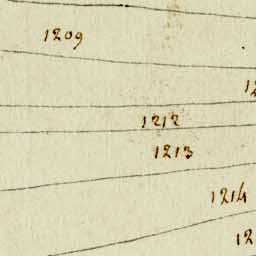 1209
12
1212
1213
1214
12